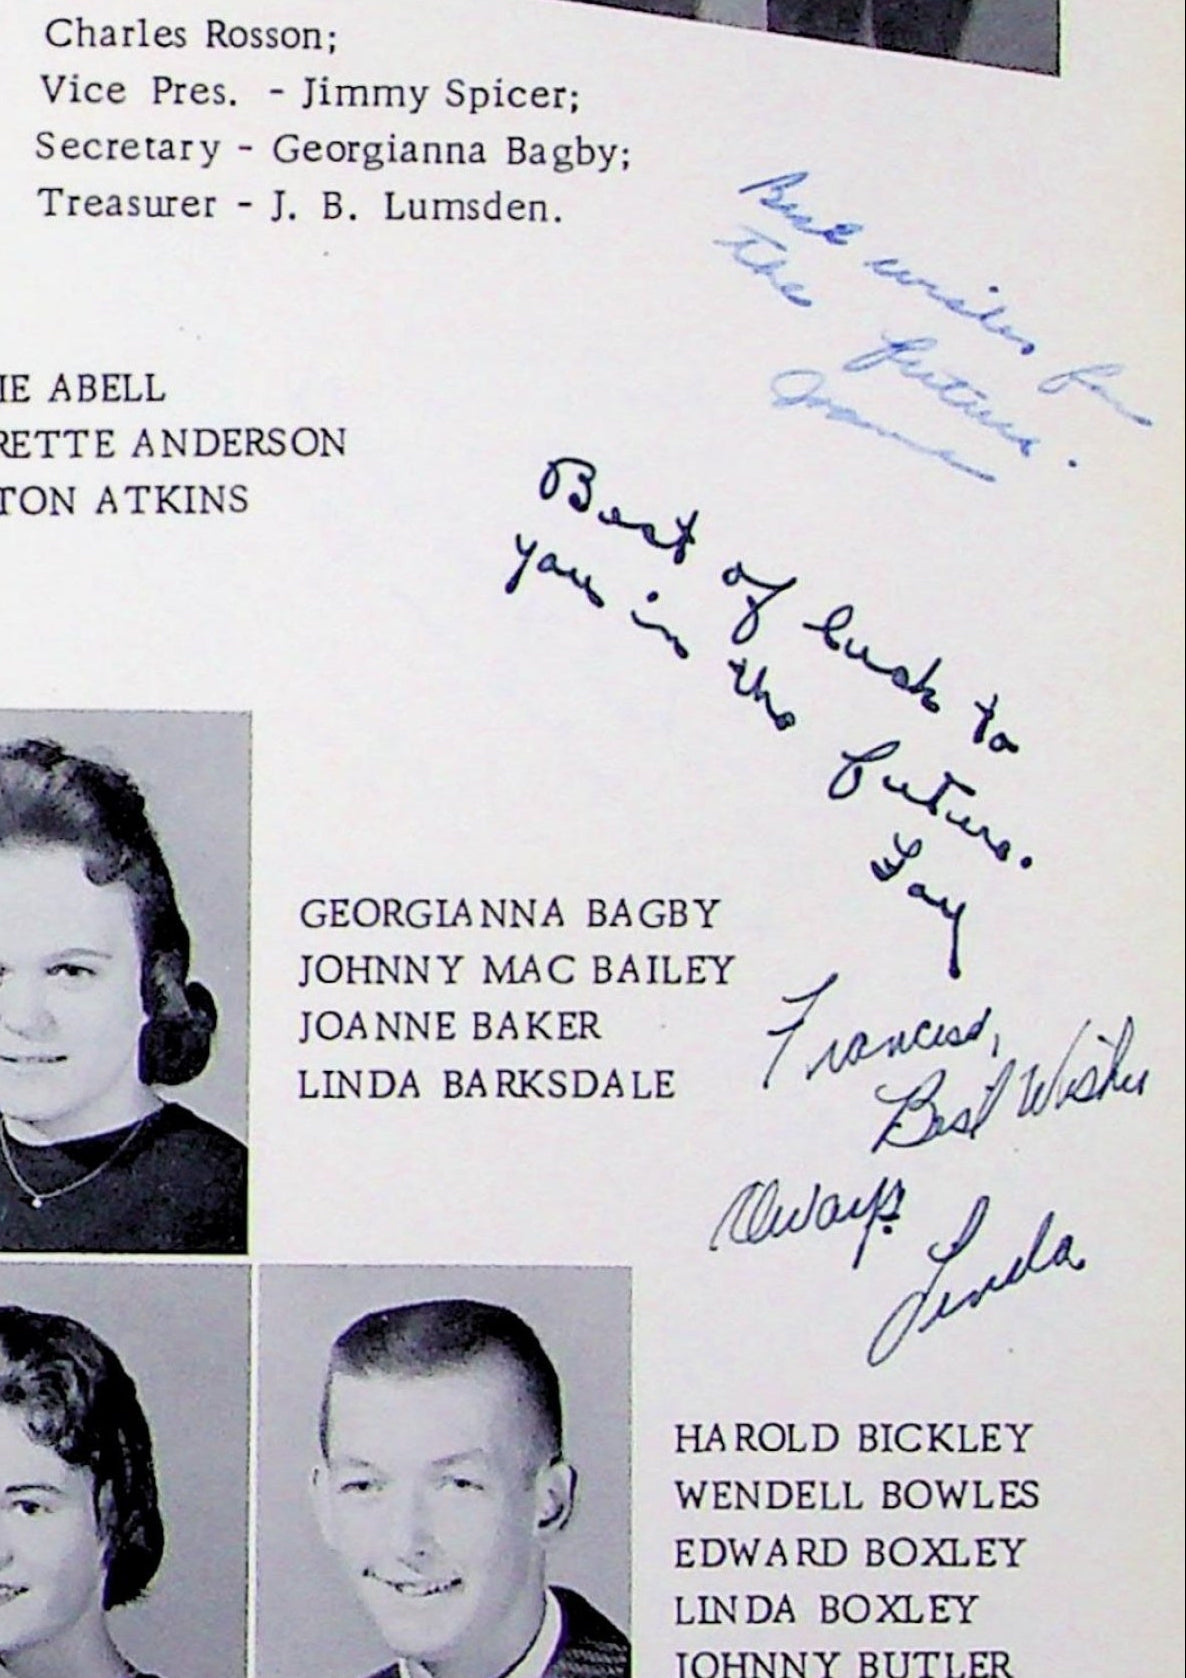 Charles Rosson;
Vice Pres. - Jimmy Spicer;
Secretary - Georgianna Bagby;
Treasurer - J. B. Lumsden.
Best wishes for
the future.
Joanne
IE ABELL
RETTE ANDERSON
TON ATKINS
Best of luck to
you in the future.
Fay
GEORGIANNA BAGBY
JOHNNY MAC BAILEY
JOANNE BAKER
LINDA BARKSDALE
Best Wishes
Always
Linda
HAROLD BICKLEY
WENDELL BOWLES
EDWARD BOXLEY
LINDA BOXLEY
JOHNNY BUTLER